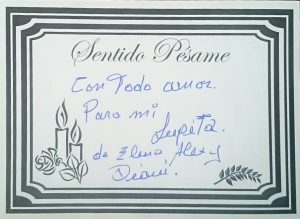 Sentido Pésame
Con todo amor.
Para mi
Lupita.
de Elena Alex y